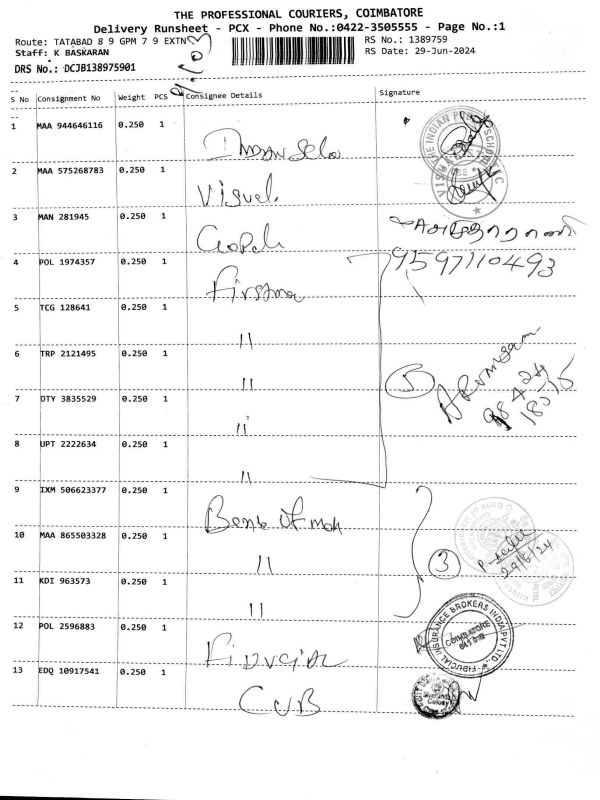 THE PROFESSIONAL COURIERS, COIMBATORE
Delivery Runsheet - PCX - Phone No.:0422-3505555 - Page No.:1
Route: TATABAD 8 9 GPM 7 9 EXTN
RS No.: 1389759
Staff: K BASKARAN
RS Date: 29-Jun-2024
DRS No.: DCJB138975901
S No Consignment No Weight PCS Consignee Details Signature
1 MAA 944646116 0.250 1
2 MAA 575268783 0.250 1 Visual
3 MAN 281945 0.250 1
4 POL 1974357 0.250 1 9597110493
5 TCG 128641 0.250 1 "
6 TRP 2121495 0.250 1 "
7 DTY 3835529 0.250 1 " 5
8 UPT 2222634 0.250 1 "
9 IXM 506623377 0.250 1 Bank of mah
10 MAA 865503328 0.250 1 " 3 29/6/24
11 KDI 963573 0.250 1 "
12 POL 2596883 0.250 1 FIDUCIAL INSURANCE BROKERS INDIA PVT LTD. COIMBATORE
13 EDQ 10917541 0.250 1 CUB